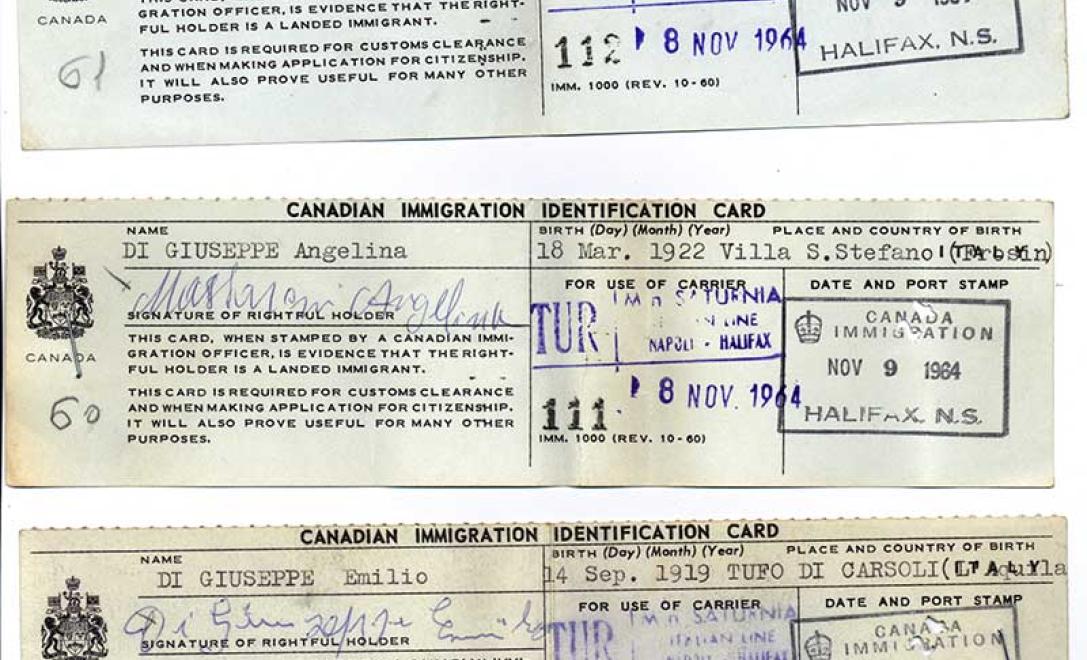 GRATION OFFICER, IS EVIDENCE THAT THE RIGHT-
FUL HOLDER IS A LANDED IMMIGRANT.
CANADA
THIS CARD IS REQUIRED FOR CUSTOMS CLEARANCE
AND WHEN MAKING APPLICATION FOR CITIZENSHIP.
IT WILL ALSO PROVE USEFUL FOR MANY OTHER
PURPOSES.
61
112
8 NOV 1964
IMM. 1000 (REV. 10-60)
NOV 9
HALIFAX, N.S.
CANADIAN IMMIGRATION IDENTIFICATION CARD
NAME
DI GIUSEPPE Angelina
BIRTH (Day) (Month) (Year) PLACE AND COUNTRY OF BIRTH
18 Mar. 1922 Villa S.Stefano ITALY
Angelina
SIGNATURE OF RIGHTFUL HOLDER
CANADA
THIS CARD, WHEN STAMPED BY A CANADIAN IMMI-
GRATION OFFICER, IS EVIDENCE THAT THE RIGHT-
FUL HOLDER IS A LANDED IMMIGRANT.
THIS CARD IS REQUIRED FOR CUSTOMS CLEARANCE
AND WHEN MAKING APPLICATION FOR CITIZENSHIP.
IT WILL ALSO PROVE USEFUL FOR MANY OTHER
PURPOSES.
60
FOR USE OF CARRIER
SATURNIA
TUR LINE
NAPOLI - HALIFAX
8 NOV. 1964
111
IMM. 1000 (REV. 10-60)
DATE AND PORT STAMP
CANADA
IMMIGRATION
NOV 9 1964
HALIFAX, N.S.
CANADIAN IMMIGRATION IDENTIFICATION CARD
NAME
DI GIUSEPPE Emilio
BIRTH (Day) (Month) (Year) PLACE AND COUNTRY OF BIRTH
14 Sep. 1919 TUFO DI CARSOLI ITALY
Di Giuseppe Emilio
SIGNATURE OF RIGHTFUL HOLDER
FOR USE OF CARRIER
M/n SATURNIA
TUR ITALIAN LINE
NAPOLI - HALIFAX
DATE AND PORT STAMP
CANADA
IMMIGRATION